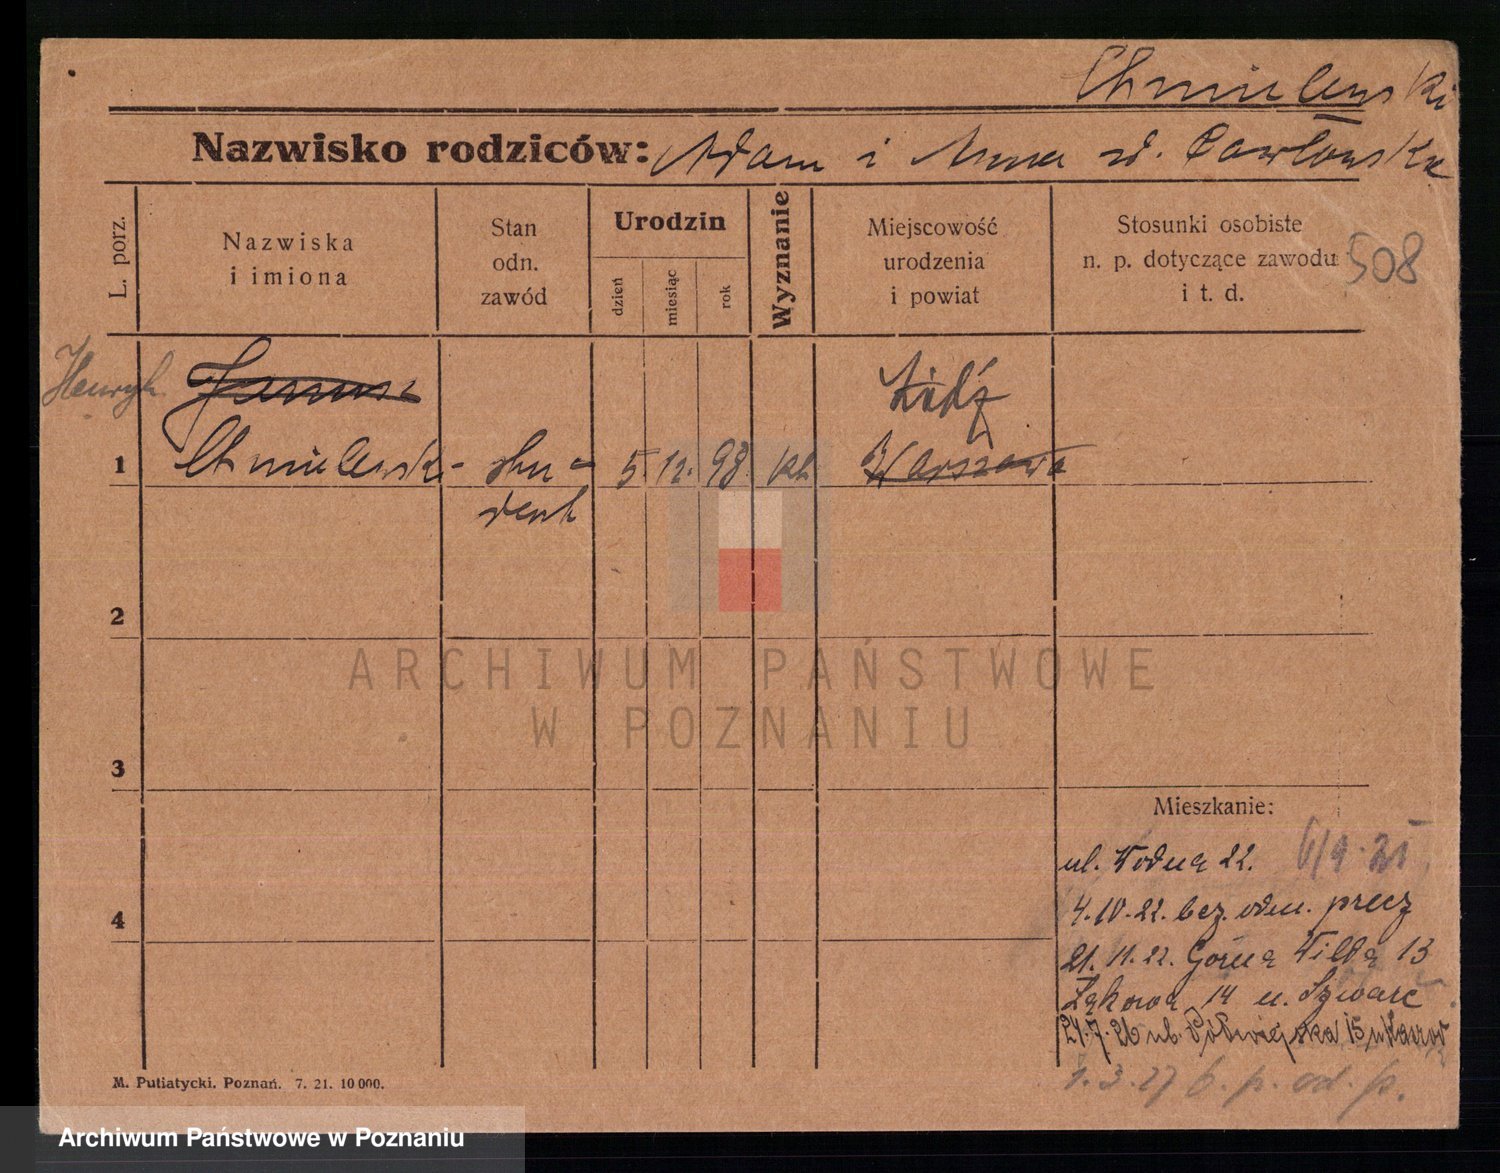 Chmielewski
Nazwisko rodziców: Adam i Anna z d. Pawłowska
L. porz.
Nazwiska i imiona
Stan odn. zawód
Urodzin
dzień
miesiąc
rok
Wyznanie
Miejscowość urodzenia i powiat
Stosunki osobiste n. p. dotyczące zawodu i t. d.
508
Henryk
Janusz
Łódź
1
Chmielewski
stu-
5. 12. 98
kt.
Warszawa
dent
2
ARCHIWUM PAŃSTWOWE
W POZNANIU
3
Mieszkanie:
ul. Wodna 22.
4
4.10.22. bez. odm. precz
21. 11. 22. Górna Wilda 13
Łąkowa 14 u. Szwarc
24.7.26 ul. Półwiejska 15
1.3.27 b. p. od. p.
M. Putiatycki. Poznań. 7. 21. 10 000.
Archiwum Państwowe w Poznaniu